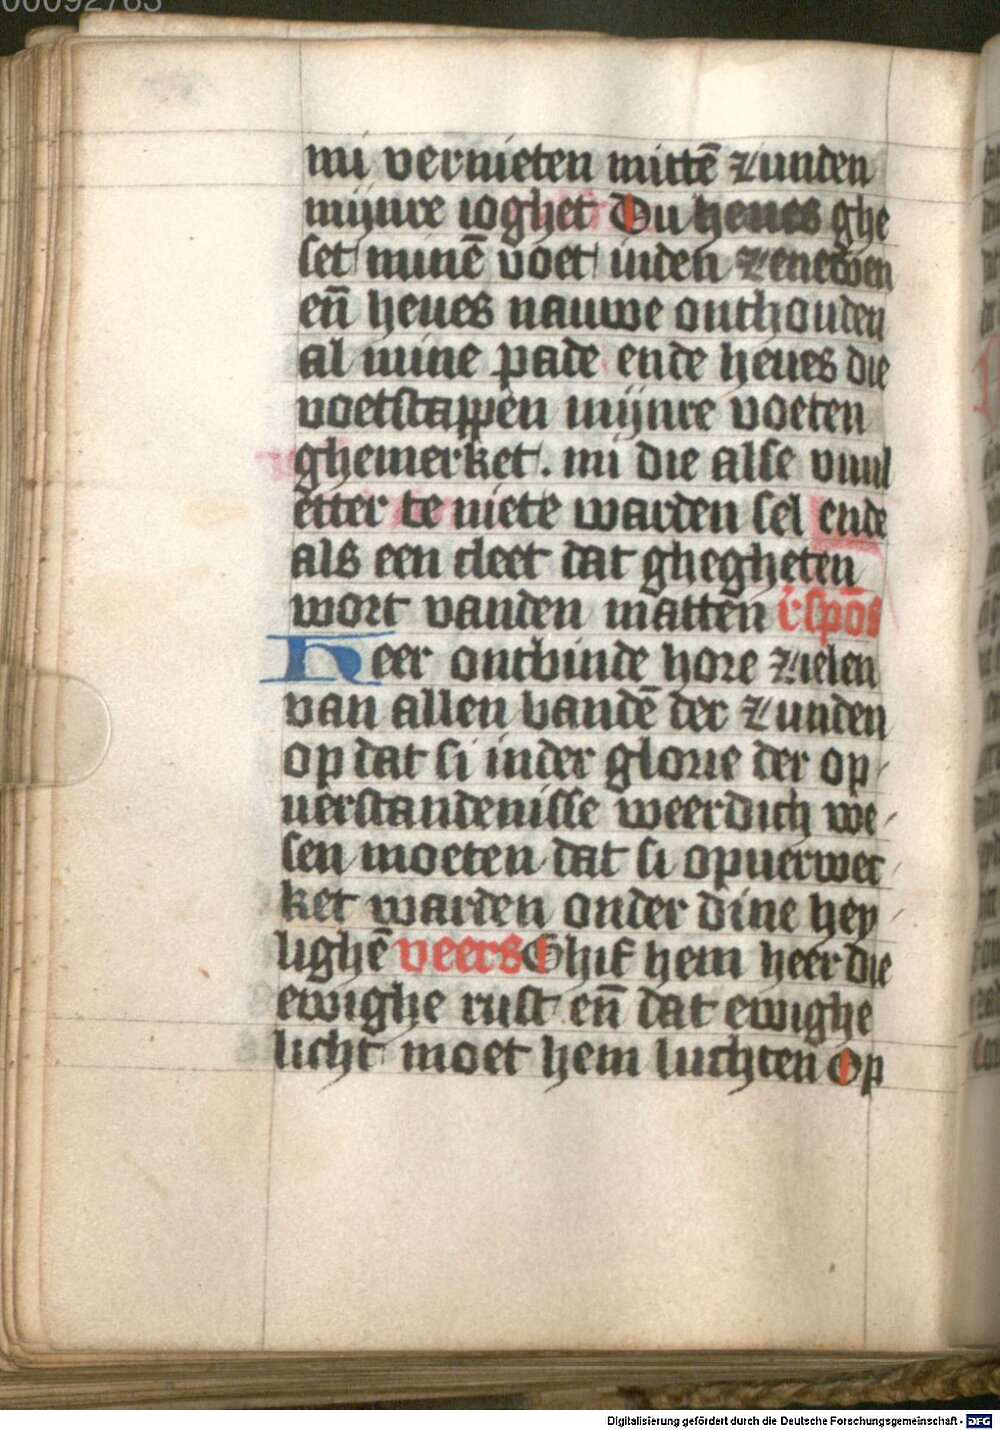 00092763
mi vernieten mittē zunden
mijnre ioghet Du heues ghe
set minē voet inden zenewen
eñ heues nauwe onthouden
al mine pade ende heues die
voetstappen mijnre voeten
ghemerket. mi die alse vuul
etter te niete warden sel ende
als een cleet dat ghegheten
wort vanden matten rspōs
Heer ontbinde hore zielen
van allen bandē der zunden
op dat si inder glorie der op
uerstandenisse weerdich we
sen moeten dat si opuerwec
ket warden onder dine hey
lighē veers Ghif hem heer die
ewighe rust eñ dat ewighe
licht moet hem luchten Op
Digitalisierung gefördert durch die Deutsche Forschungsgemeinschaft - DFG